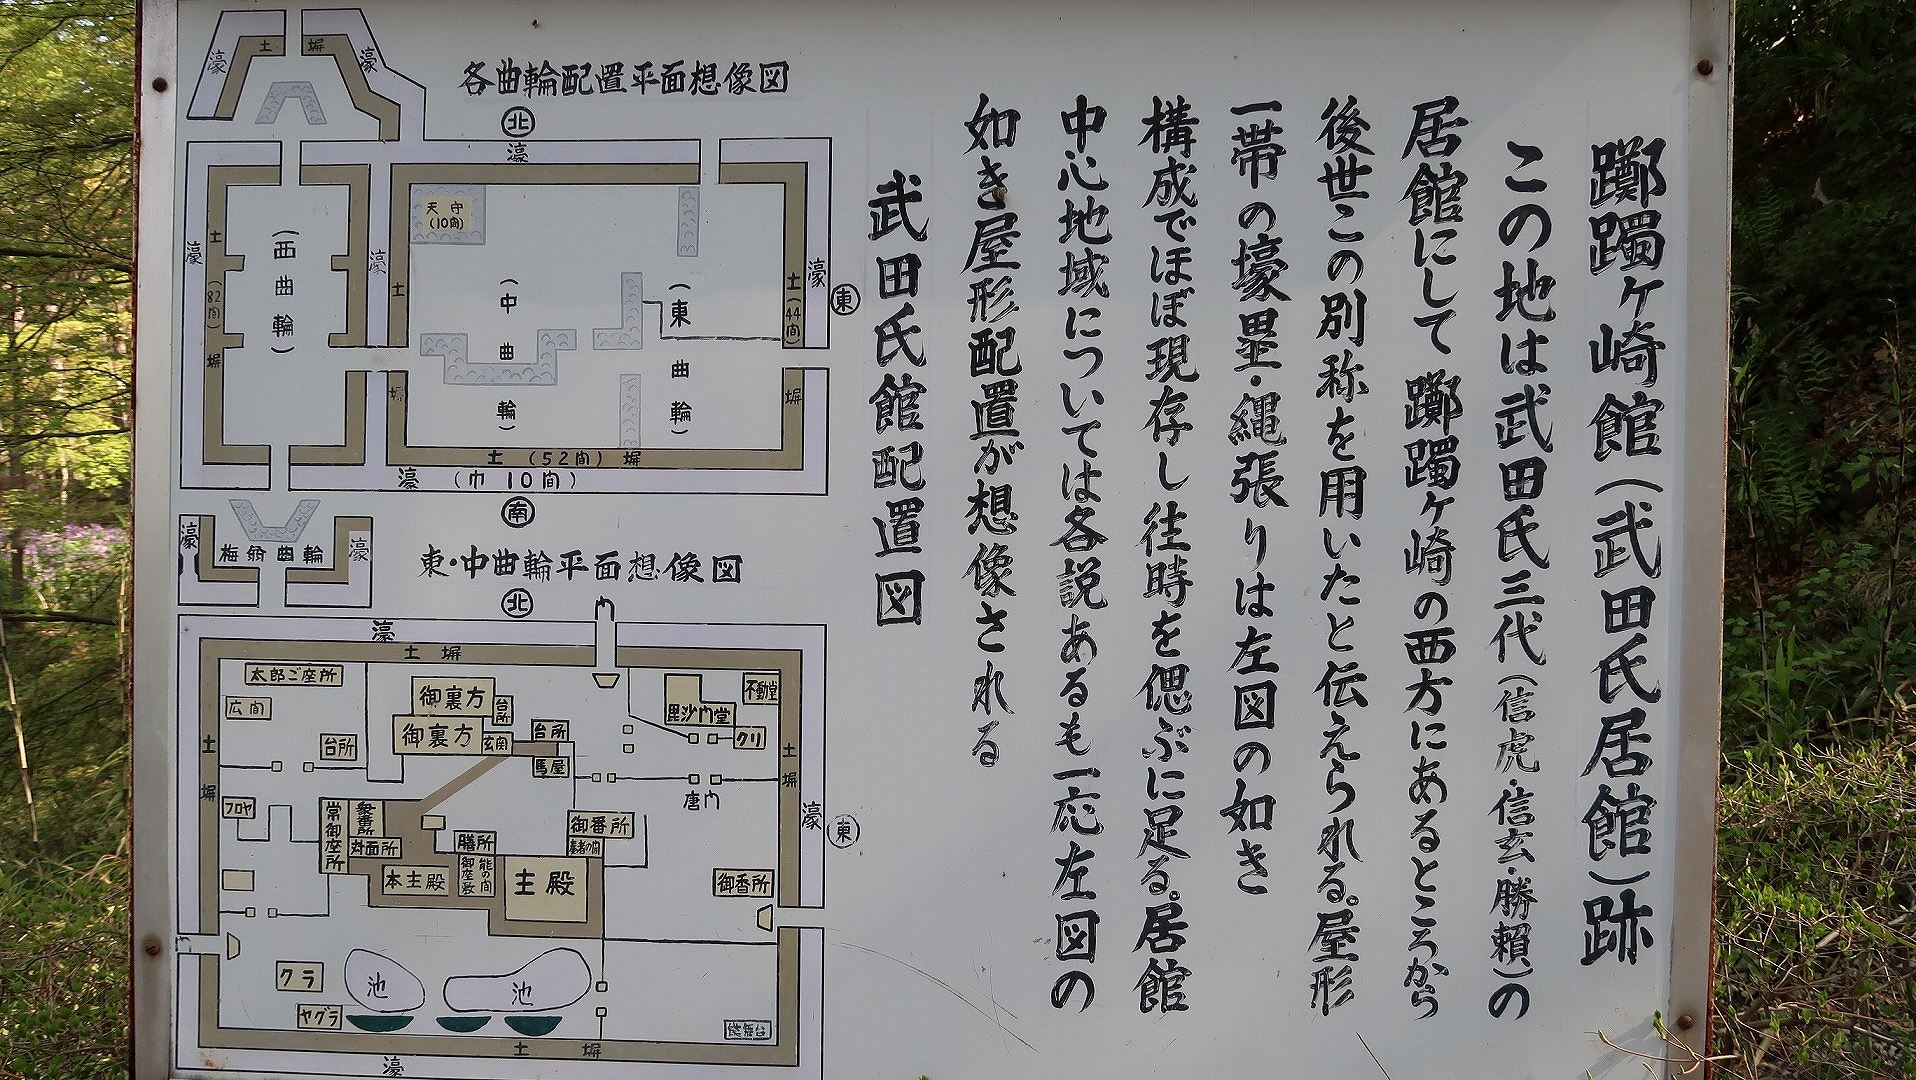 躑躅ヶ崎館(武田氏居館)跡
この地は武田氏三代(信虎・信玄・勝頼)の
居館にして躑躅ヶ崎の西方にあるところから
後世この別称を用いたと伝えられる。屋形
一帯の壕塁・縄張りは左図の如き
構成でほぼ現存し往時を偲ぶに足る。居館
中心地域については各説あるも一応左図の
如き屋形配置が想像される
武田氏館配置図
各曲輪配置平面想像図
北
濠
土塀
濠
濠
天守
(10間)
(西曲輪)
(中曲輪)
(東曲輪)
濠
土(82間)塀
濠
土
塀
土(44間)塀
濠
東
土(52間)塀
濠(巾10間)
南
濠
梅翁曲輪
濠
東・中曲輪平面想像図
北
濠
土塀
太郎ご座所
広間
台所
御裏方
台所
御裏方
玄関
台所
馬屋
毘沙門堂
不動堂
クリ
唐門
土塀
土塀
濠
東
フロヤ
常御座所
対面所
本主殿
膳所
御座敷
能の間
主殿
御番所
御香所
クラ
ヤグラ
池
池
能舞台
土塀
濠